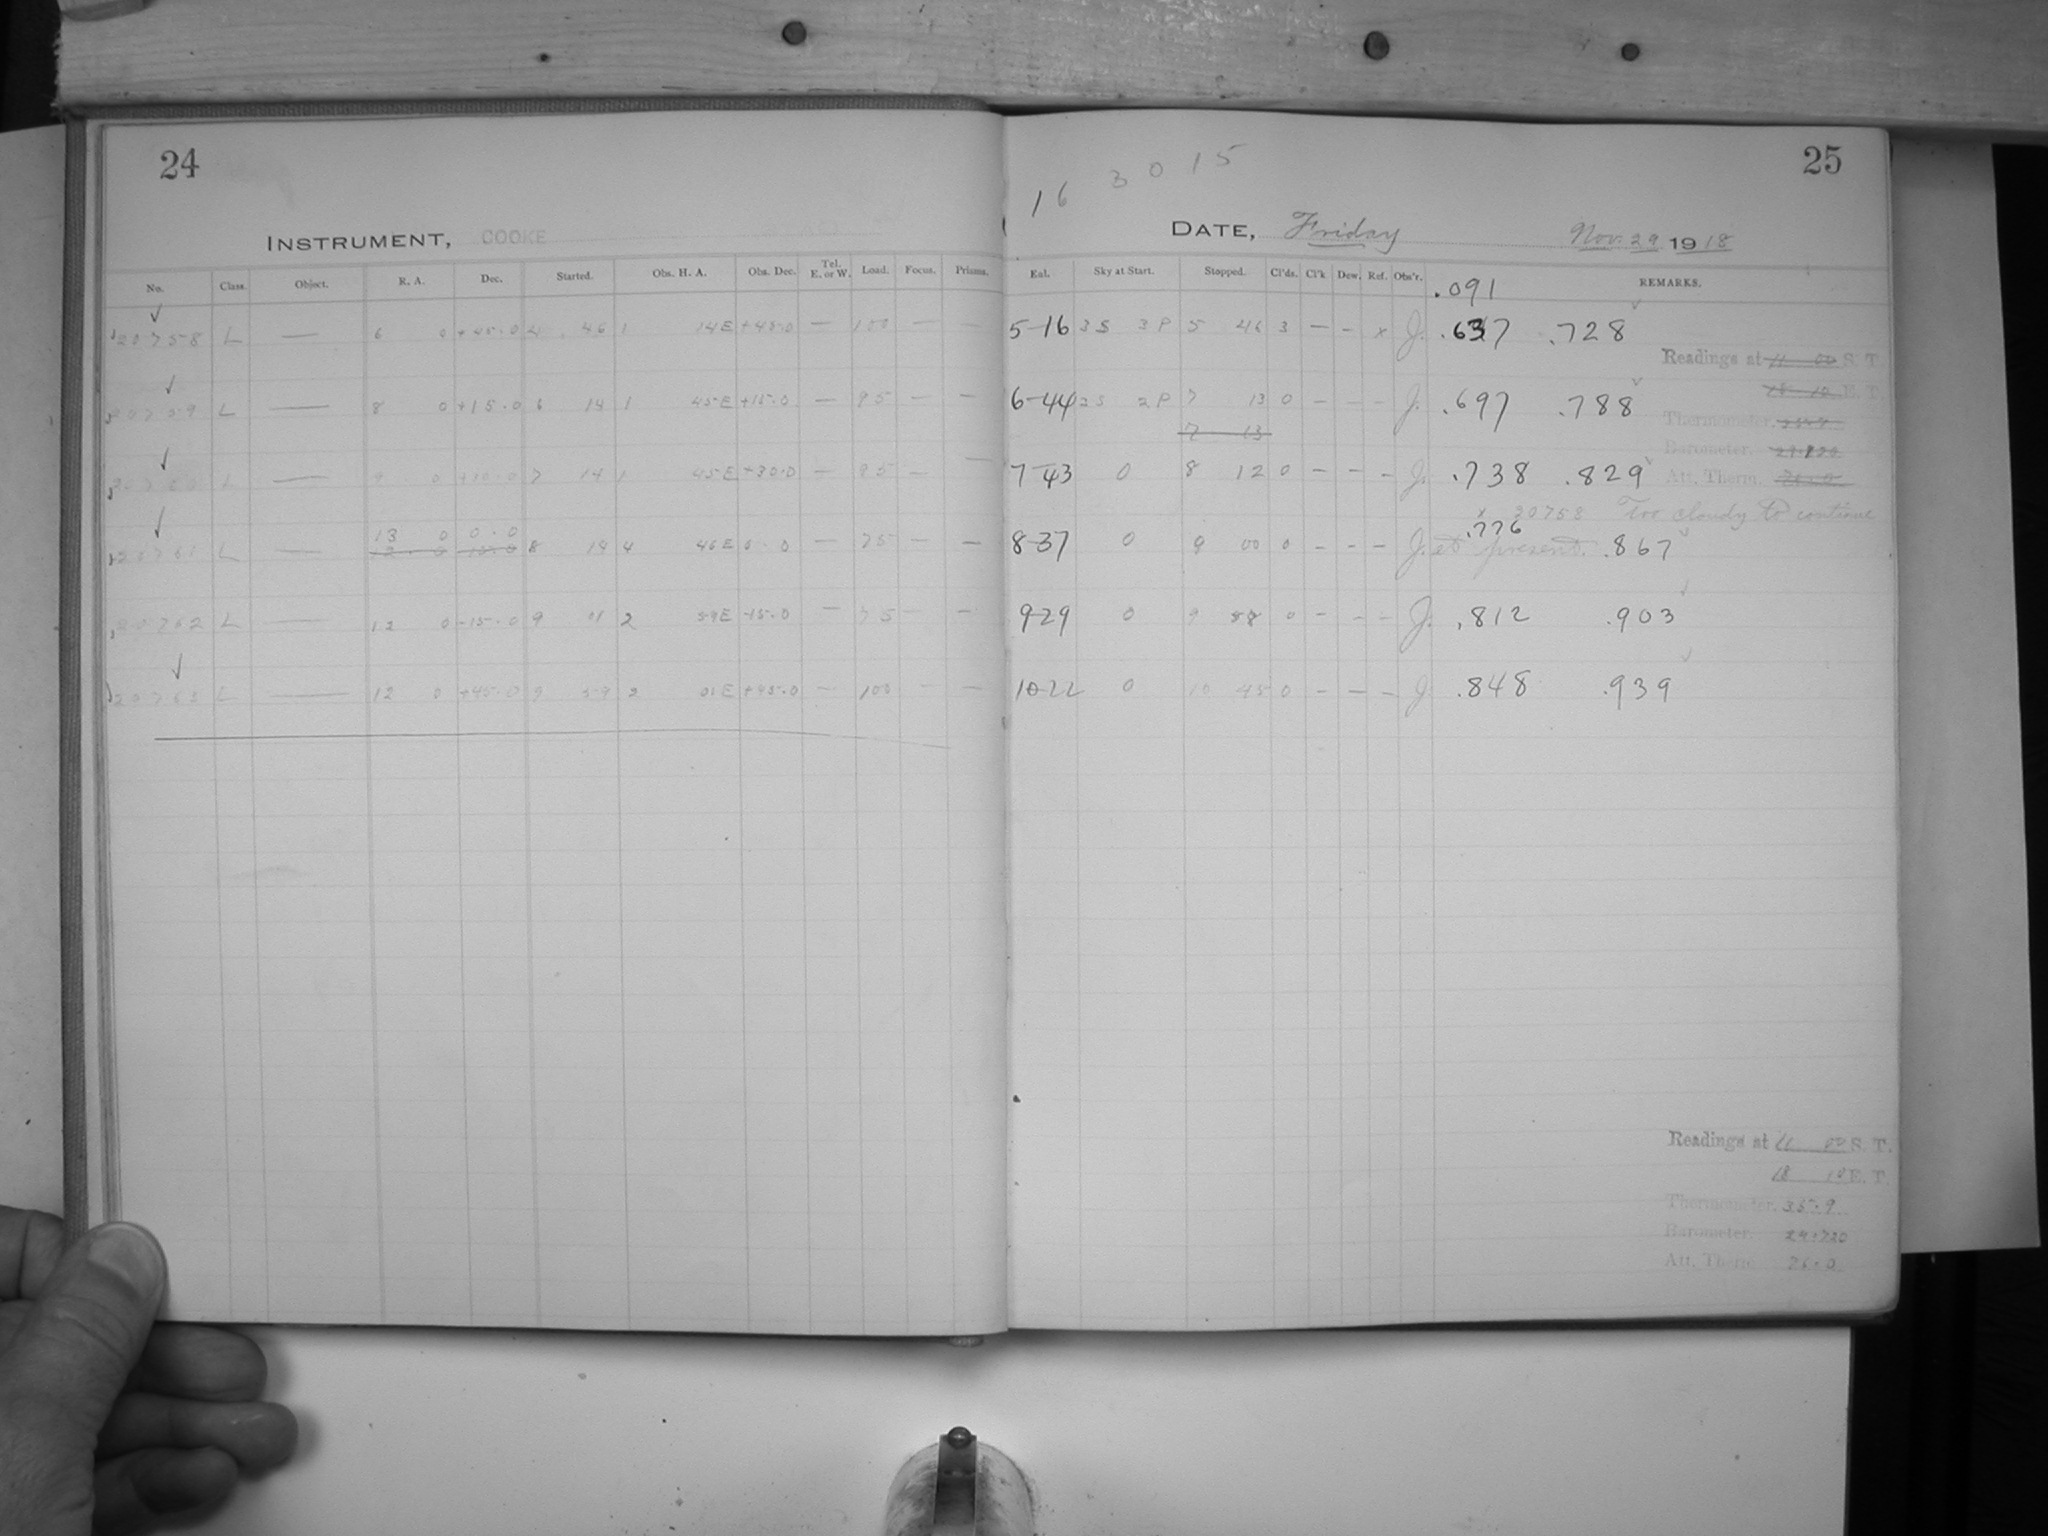 24
INSTRUMENT, COOKE
No. Class. Object. R. A. Dec. Started. Obs. H. A. Obs. Dec. Tel. E. or W. Load. Focus. Prisms.
20758 L — 6 0 +45.0 4 46 1 14E +45.0 — 100 — —
20759 L — 8 0 +15.0 6 14 1 45E +15.0 — 95 — —
L — 9 0 +30.0 7 14 1 45E +30.0 — 95 — —
13 0 0.0
20761 L — 8 14 4 46E 0.0 — 75 — —
20762 L — 12 0 -15.0 9 01 2 59E -15.0 — 75 — —
20763 L — 12 0 +45.0 9 59 2 01E +45.0 — 100 — —
25
16 3015
DATE, Friday Nov. 29 1918
Eal. Sky at Start. Stopped. Cl'ds. Cl'k Dew. Ref. Obs'r. .091 REMARKS.
5-16 3S 3P 5 46 3 — - x J. .637 .728
Readings at 11 00 S. T.
18 10 E. T.
6-44 2S 2P 7 13 0 - - - J. .697 .788
Thermometer.
7 13
Barometer.
7-43 0 8 12 0 - - - J. .738 .829
Att. Therm.
x 20758 Too cloudy to continue
.776
8-37 0 9 00 0 - - - J. at present. .867
9-29 0 9 58 0 - - - J. .812 .903
10-22 0 10 45 0 - — - J. .848 .939
Readings at 11 00 S. T.
18 10 E. T.
Thermometer. 35.9
Barometer. 29.720
Att. Therm. 26.0